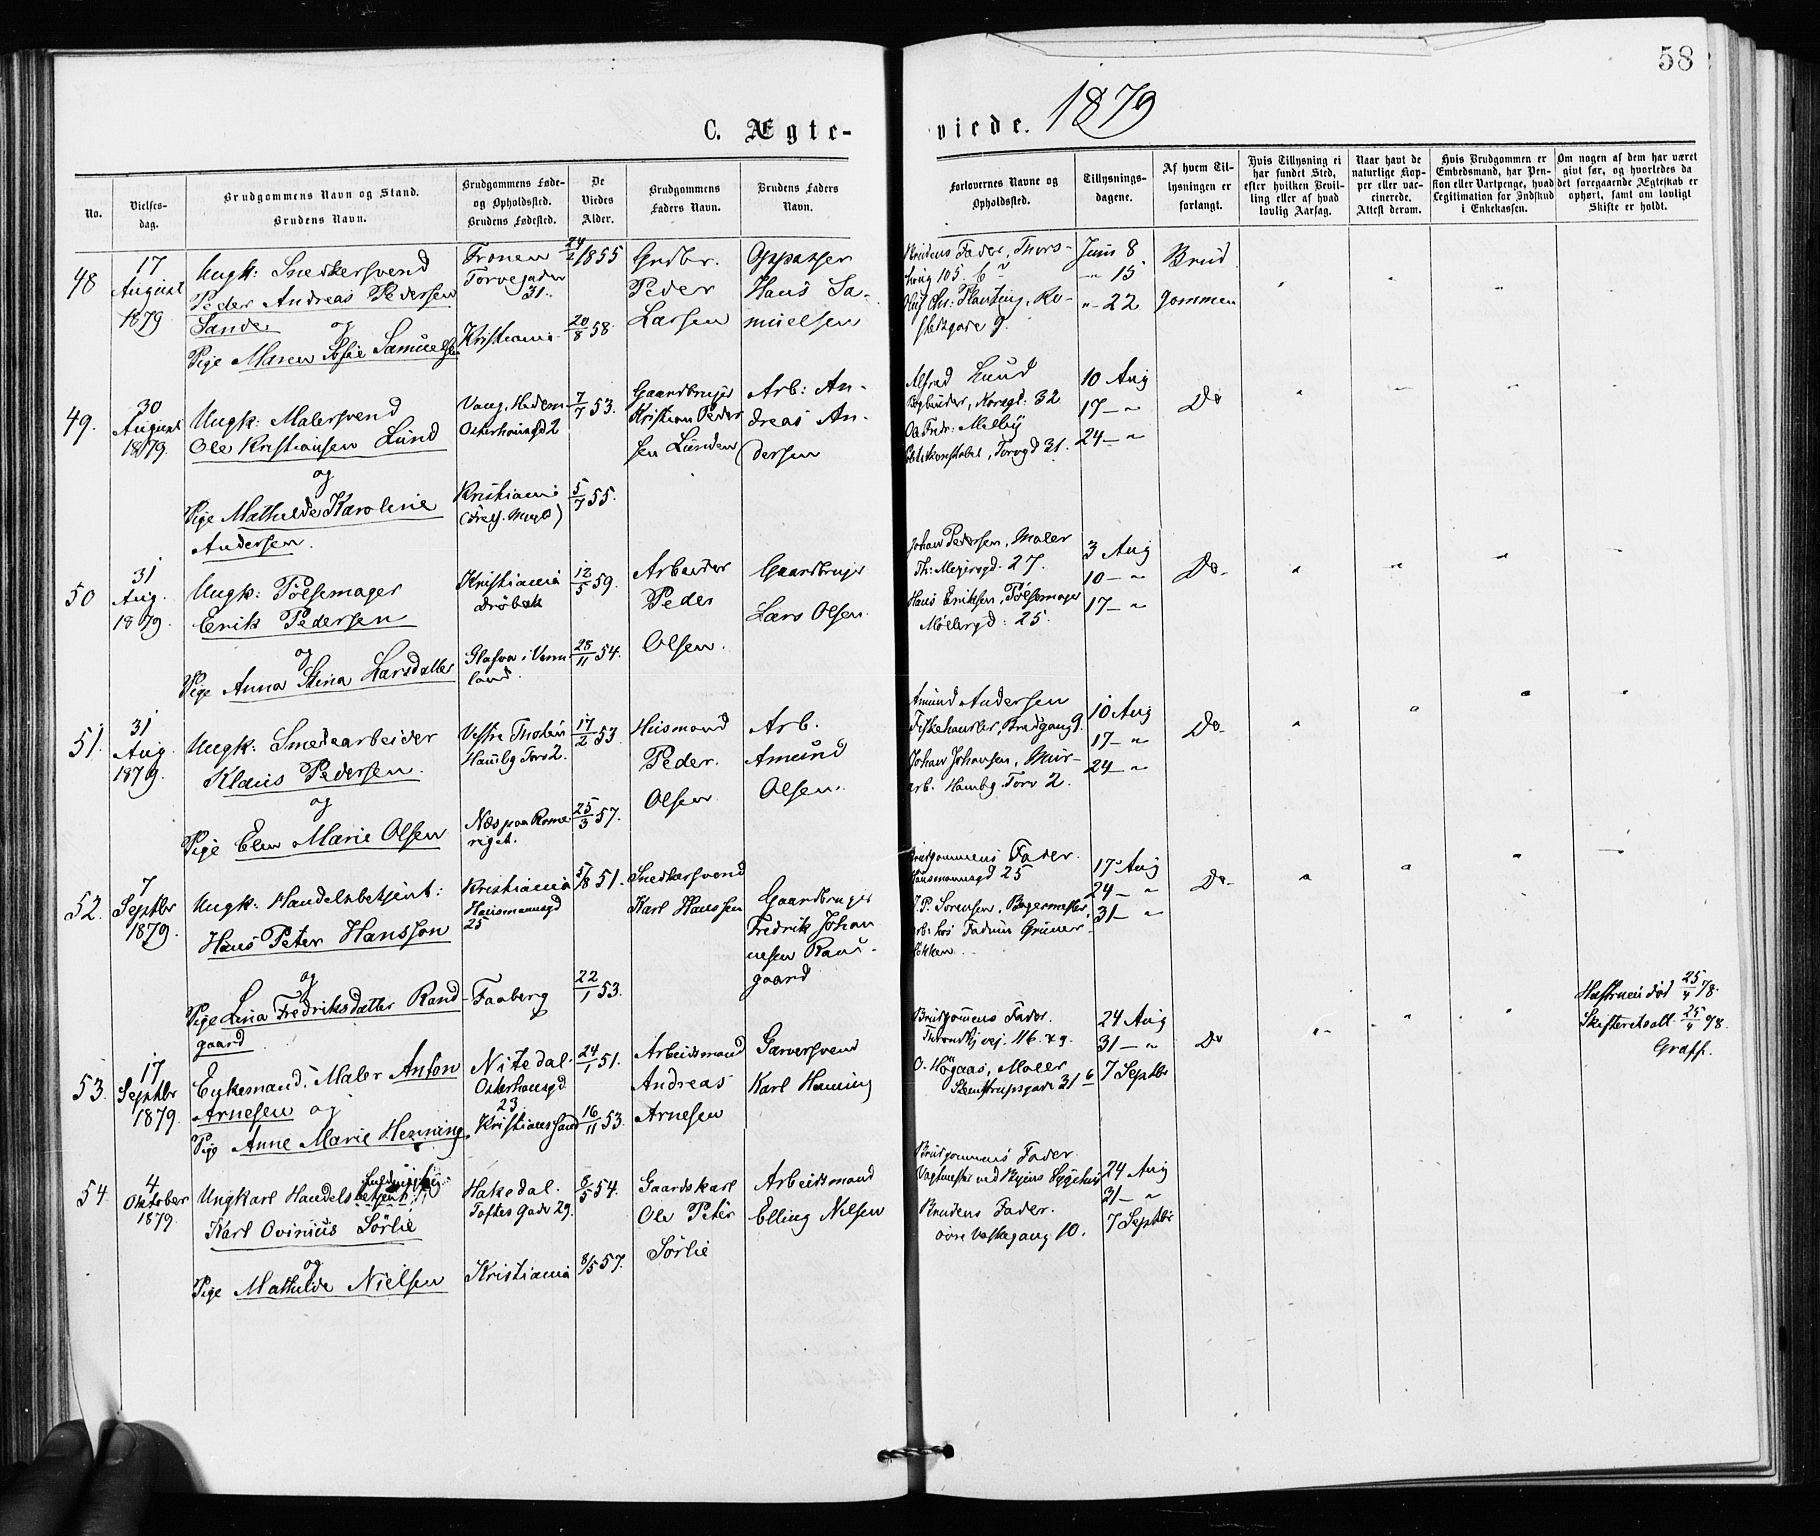 58
C. Ægte-
viede. 1879
No.
Vielses-
dag.
Brudgommens Navn og Stand.
Brudens Navn.
Brudgommens Føde-
og Opholdssted.
Brudens Fødested.
De
Viedes
Alder.
Brudgommens
Faders Navn.
Brudens Faders
Navn.
Forlovernes Navne og
Opholdssted.
Tillysnings-
dagene.
Af hvem Til-
lysningen er
forlangt.
Hvis Tillysning ei
har fundet Sted,
efter hvilken Bevil-
ling eller af hvad
lovlig Aarsag.
Naar havt de
naturlige Kop-
per eller vac-
cinerede.
Attest derom.
Hvis Brudgommen er
Embedsmand, har Pen-
sion eller Vartpenge, hvad
Legitimation for Indskud
i Enkekassen.
Om nogen af dem har været
givt før, og hvorledes da
det foregaaende Ægteskab er
ophørt, samt om lovligt
Skifte er holdt.
48
17
August
1879
Ungk: Snedkersvend
Peder Andreas Pedersen
Sande og
Pige Maren Sofie Samuelsen
Fronen
Torvegaden
31.
Kristiania
24/2 1855
20/8 58.
Grdbr.
Peder
Larsen
Oppasser
Hans Sa-
muelsen
Brudens Fader, Thors-
haug 105. b
Oluf Chr: Planting, Ro-
stedsgade 9.
Juni 8
" 15
" 22
Brud
gommen
49.
30
August
1879.
Ungk: Malersvend
Ole Kristiansen Lund
og
Pige Mathilde Karoline
Andersen.
Vang, Hedem
Osterhausgd 2
Kristiania
7/7 53.
5/7 55.
Gaardbruger
Kristian Peder
sen Lunden
Arb: An-
dreas An-
dersen
Alfred Lund
Bogbinder, Korsgt: 32
Ole Fredr: Melby
Torvgd 31.
10 Aug
17 — "
24 — "
Do
50
31
Aug.
1879.
Ungk: Pølsemager
Erik Pedersen
og
Pige Anna Stina Larsdatter
Kristiania
Drøbak
Glafva i Verm-
land.
12/5 59.
28/11 54.
Arbeider
Peder
Olsen.
Gaardbruger
Lars Olsen
Johan Pedersen, Maler
Th: Meyersgd. 27.
Hans Eriksen, Pølsemager
Møllergd: 25.
3 Aug
10 — "
17 — "
Do.
51.
31
Aug.
1879.
Ungk: Smedearbeider
Klaus Pedersen.
og
Pige Elen Marie Olsen
Vestre Thoten
Hambg Torv 2.
Næs paa Rome-
riget.
17/2 53
25/3 57.
Husmand
Peder.
Olsen
Arb.
Amund
Olsen.
Amund Andersen
Fiskehandler, Bredgang 9.
Johan Johansen, Mur-
arb. Hambg. Torv 2.
10 Aug
17 — "
24 — "
Do
52.
7
Septbr
1879.
Ungk: Handelsbetjent:
Hans Peter Hansson
og
Pige Lina Fredriksdatter Rand
gaard
Kristiania
Hausmannsgd
25
Faaberg
5/8 51.
22/1 53.
Snedkersvend
Karl Hanssen
Gaardbruger
Fredrik Johan
nesen Ran-
gaard
Brudgommens Fader.
Hausmannsgd 25
J. P. Sørensen, Bagermester,
Grüner
løkken.
17 Aug
24 — "
31 — "
Do
53.
17
Septbr
1879.
Enkemand, Maler Anton
Arnesen og
Pige Anne Marie Henning
Nitedal.
Osterhausgd.
23
Kristianssand
24/1 51.
16/11 53.
Arbeidsmand
Andreas
Arnesen
Garversvend
Karl Henning
Brudgommens Fader.
O. Høgaas, Maler
Stenstrupsgade 31 b
24 Aug
31 — "
7 Septbr
Do
Hustruen død 25/4 78.
Skifteretsatt. 25/4 78.
Graff.
54.
4
Oktober
1879.
Ungkarl Handelsbetjent
Karl Ovinius Sørlie
og
Pige Mathilde Nielsen
Hakedal.
Toftes Gade 29.
Kristiania
8/5 54.
8/5 57.
Gaardskarl
Ole Peter
Sørlie
Arbeidsmand
Elling Nilsen
Brudgommens Fader.
Vagtmester ved Byens Sygehus
Brudens Fader.
øvre Vaskegang 10.
24 Aug
31 — "
7 Septbr